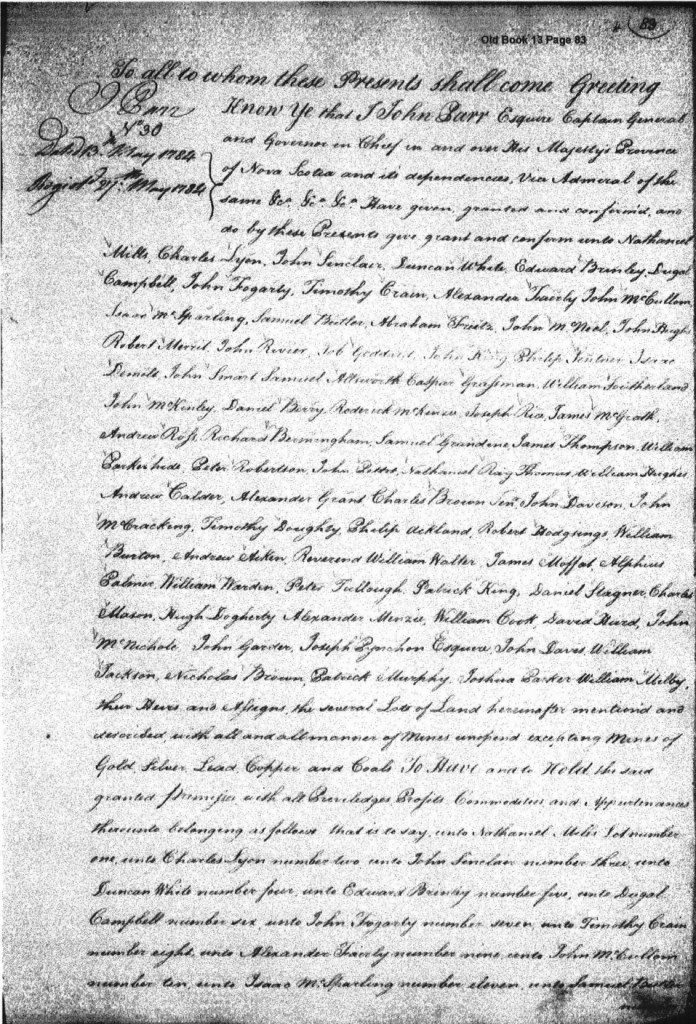 83
Old Book 13 Page 83
To all to whom these Presents shall come Greeting
J Parr
Know Ye that I John Parr Esquire Captain General
No 30
and Governor in Chief in and over His Majesty's Province
Dated 13th May 1784
of Nova Scotia and its dependencies, Vice Admiral of the
Registd 27th May 1784
same &c. &c. &c. Have given, granted and confirm'd, and
do by these Presents give grant and confirm unto Nathaniel
Mills, Charles Lyon, John Sinclair, Duncan White, Edward Brinley, Dugal
Campbell, John Fogarty, Timothy Crain, Alexander Fairly John McCullom,
Isaac McSparling, Samuel Butler, Abraham Fritz, John McNeal, John Hughs
Robert Merrit, John Rivier, Job Goddard, John King Philip Isaac
Demill, John Smart Samuel Allsworth Caspar Grassman, William Southerland
John McKinley, Daniel Berry, Roderick McKenzie, Joseph Rice, James McGrath,
Andrew Ross, Richard Bermingham, Samuel Grandine, James Thompson, William
Peter Robertson, John Nathaniel Ray Thomas, William Hughes
Andrew Calder, Alexander Grant Charles Brown Senr John Davison, John
McCracking, Timothy Doughty, Philip Ackland, Robert Hodgings William
Burton, Andrew Aiken, Reverend William Walter, James Moffat, Alpheus
Palmer, William Warden, Peter Tullough, Patrick King, Daniel Slagner, Charles
Mason, Hugh Dogherty Alexander Menzie, William Cook, David Hurd, John
McNichole, John Garder, Joseph Pynchon Esquire, John Davis, William
Jackson, Nicholas Brown, Patrick Murphy, Joshua Parker William Milby,
their Heirs and Assigns, the several Lots of Land hereinafter mentiond and
described, with all and all manner of Mines unopend excepting Mines of
Gold, Silver, Lead, Copper and Coals To Have and to Hold the said
granted premises with all Priviledges, Profits, Commodities, and Appurtenances
thereunto belonging as follows that is to say, unto Nathaniel Mills Lot number
one, unto Charles Lyon number two unto John Sinclair number three, unto
Duncan White number four, unto Edward Brinley number five, unto Dugal
Campbell number six, unto John Fogarty number seven, unto Timothy Crain
number eight, unto Alexander Fairly number nine, unto John McCullom
number ten, unto Isaac McSparling number eleven, unto Samuel Butler